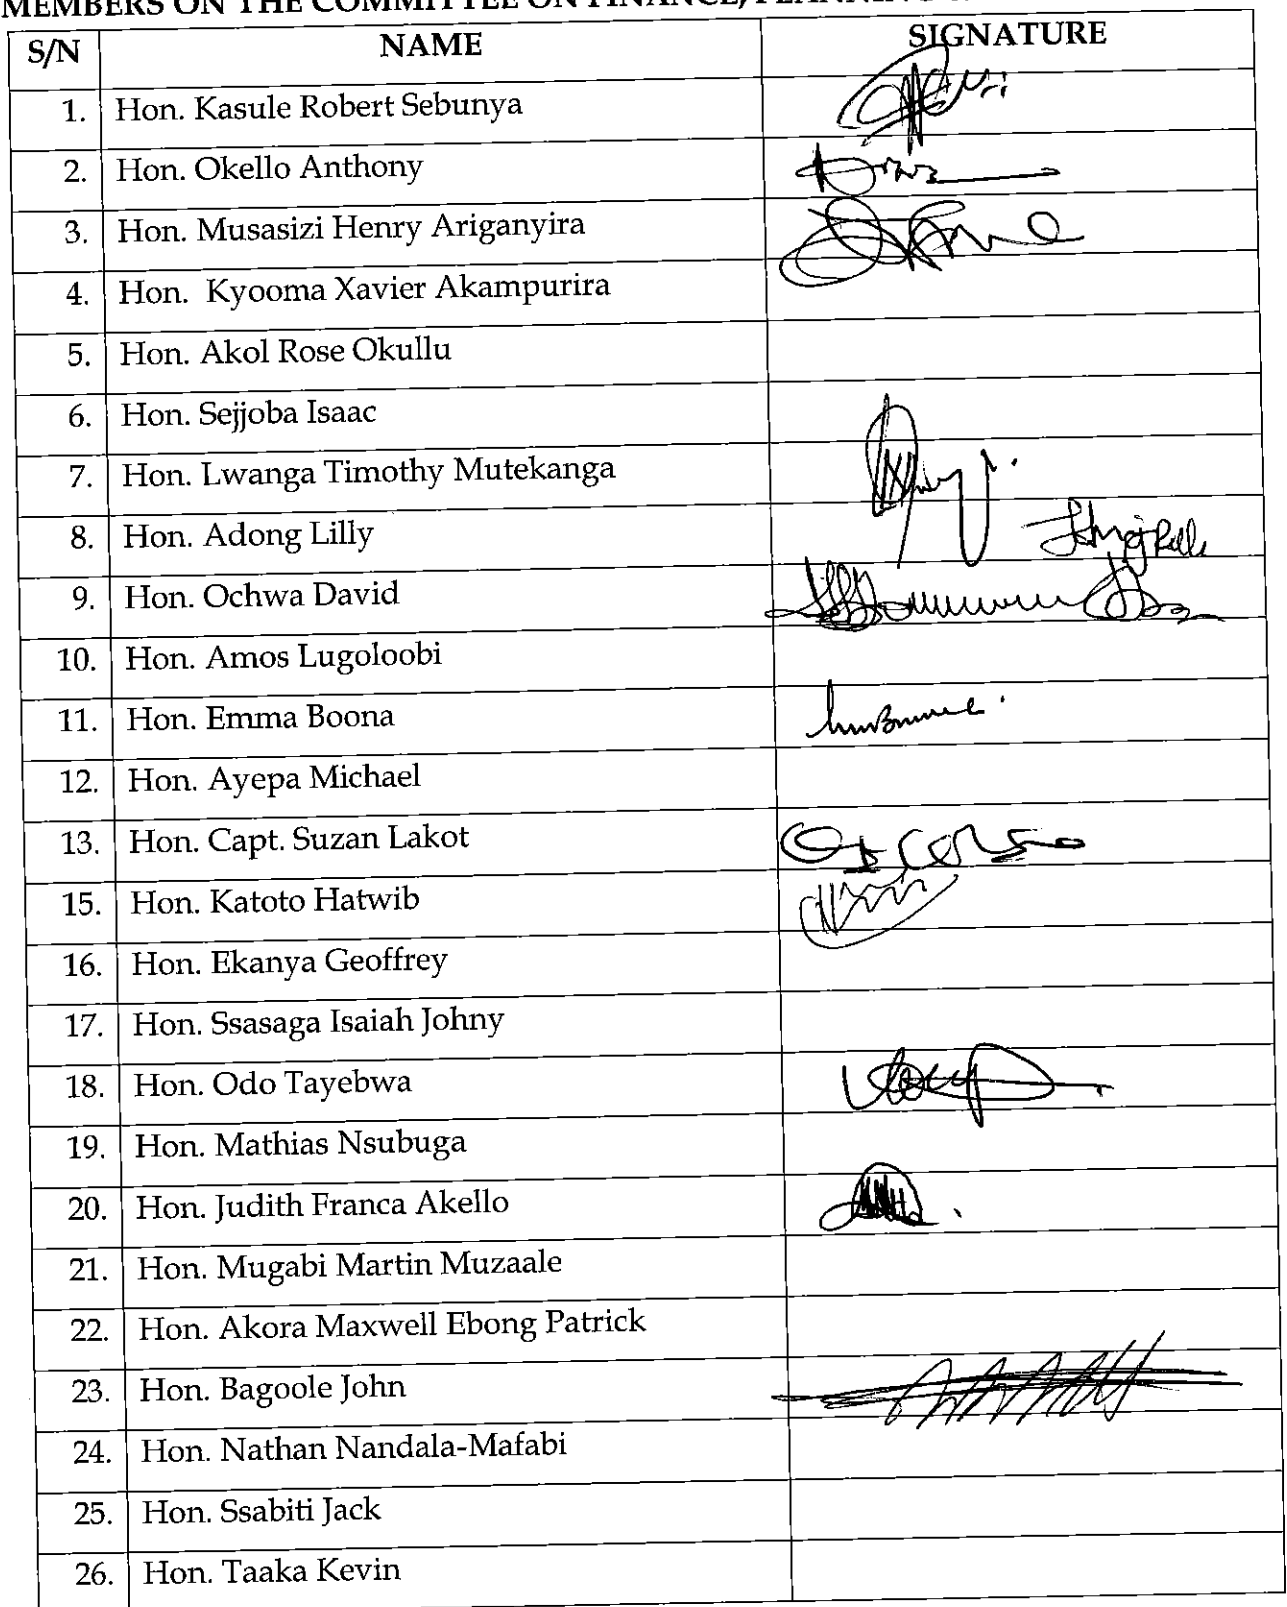 MEMBERS ON THE COMMITTEE ON FINANCE,
S/N NAME SIGNATURE
1. Hon. Kasule Robert Sebunya
2. Hon. Okello Anthony
3. Hon. Musasizi Henry Ariganyira
4. Hon. Kyooma Xavier Akampurira
5. Hon. Akol Rose Okullu
6. Hon. Sejjoba Isaac
7. Hon. Lwanga Timothy Mutekanga
8. Hon. Adong Lilly
9. Hon. Ochwa David
10. Hon. Amos Lugoloobi
11. Hon. Emma Boona
12. Hon. Ayepa Michael
13. Hon. Capt. Suzan Lakot
15. Hon. Katoto Hatwib
16. Hon. Ekanya Geoffrey
17. Hon. Ssasaga Isaiah Johny
18. Hon. Odo Tayebwa
19. Hon. Mathias Nsubuga
20. Hon. Judith Franca Akello
21. Hon. Mugabi Martin Muzaale
22. Hon. Akora Maxwell Ebong Patrick
23. Hon. Bagoole John
24. Hon. Nathan Nandala-Mafabi
25. Hon. Ssabiti Jack
26. Hon. Taaka Kevin